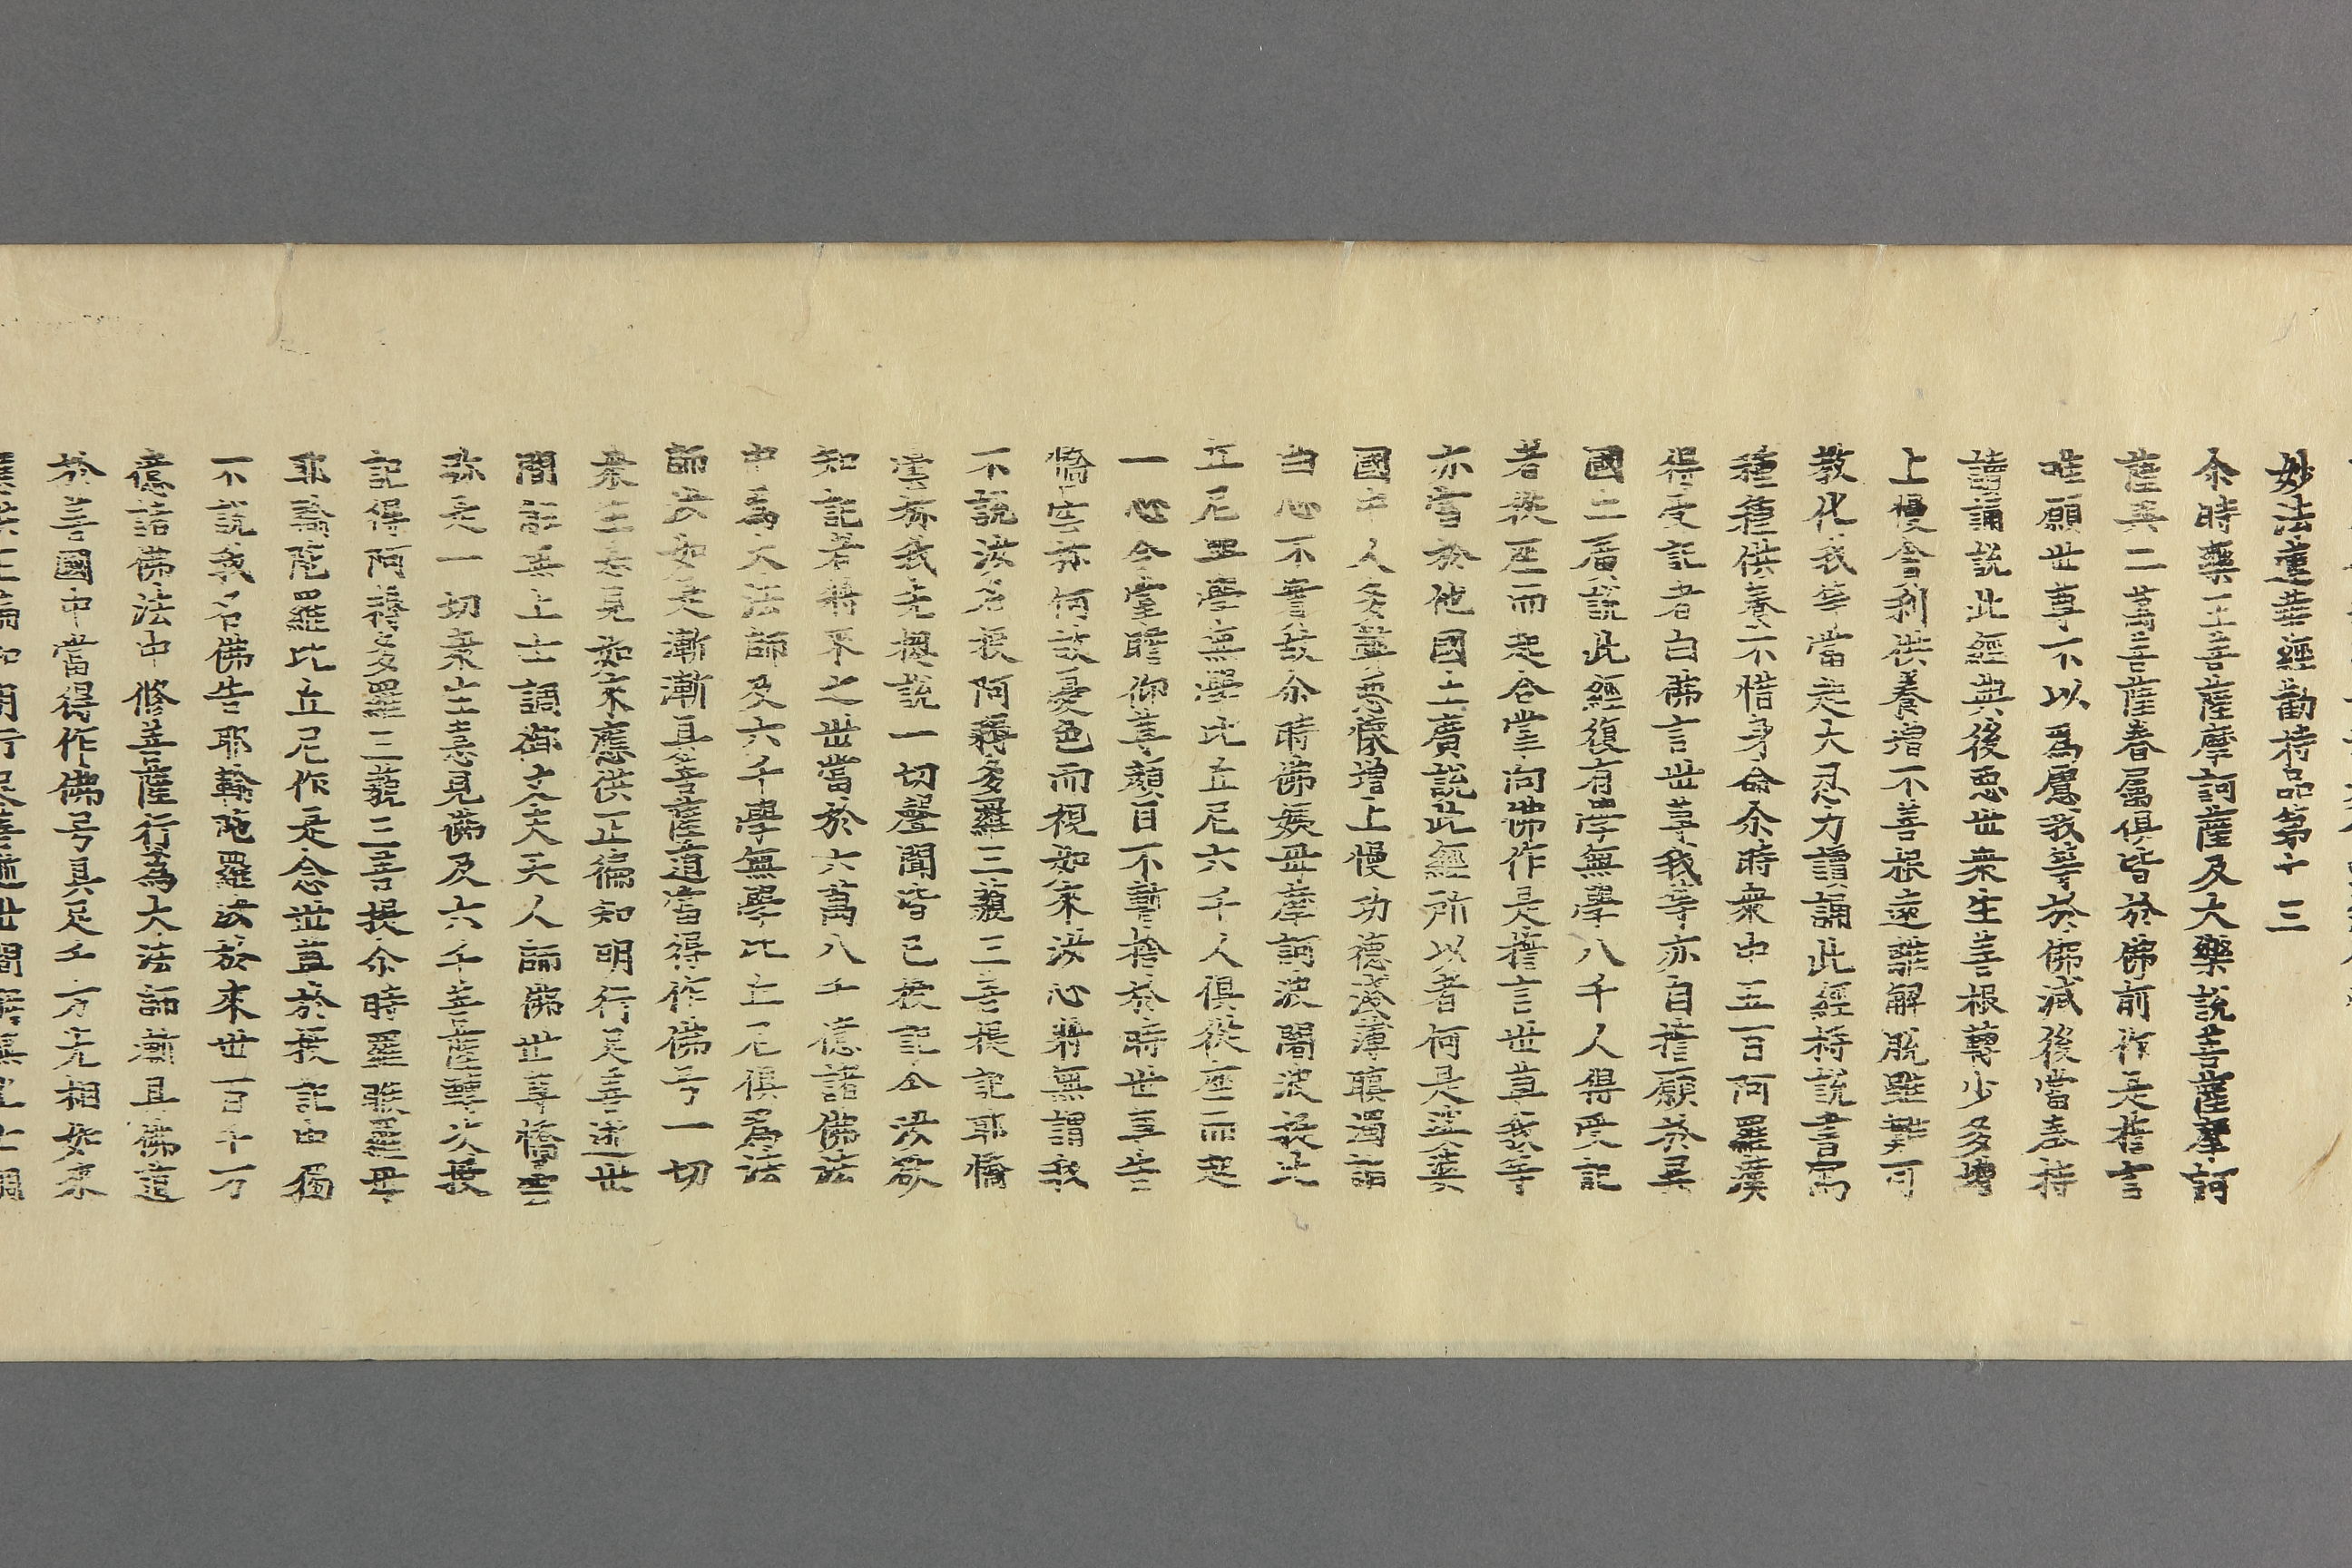 妙法蓮華經勸持品第十三
尒時藥王菩薩摩訶薩及大樂說菩薩摩訶
薩與二萬菩薩眷屬俱皆於佛前作是誓言
唯願世尊不以爲慮我等於佛滅後當奉持
讀誦說此經典後惡世衆生善根轉少多增
上慢貪利供養增不善根遠離解脫雖難可
教化我等當起大忍力讀誦此經持說書寫
種種供養不惜身命尒時衆中五百阿羅漢
得受記者白佛言世尊我等亦自誓願於異
國土廣說此經復有學無學八千人得受記
者從座而起合掌向佛作是誓言世尊我等
亦當於他國土廣說此經所以者何是娑婆
國中人多弊惡懷增上慢功德淺薄瞋濁諂
曲心不實故尒時佛姨母摩訶波闍波提比
丘尼與學無學比丘尼六千人俱從座而起
一心合掌瞻仰尊顏目不暫捨於時世尊告
憍曇弥何故憂色而視如來汝心將無謂我
不說汝名授阿耨多羅三藐三菩提記耶憍
曇弥我先揔說一切聲聞皆已授記今汝欲
知記者將來之世當於六萬八千億諸佛法
中爲大法師及六千學無學比丘尼俱爲法
師汝如是漸漸具菩薩道當得作佛号一切
衆生喜見如來應供正徧知明行足善逝世
間解無上士調御丈夫天人師佛世尊憍曇
弥是一切衆生喜見佛及六千菩薩轉次授
記得阿耨多羅三藐三菩提尒時羅睺羅母
耶輸陀羅比丘尼作是念世尊於授記中獨
不說我名佛告耶輸陀羅汝於來世百千万
億諸佛法中修菩薩行爲大法師漸具佛道
於善國中當得作佛号具足千万光相如來
應供正徧知明行足善逝世間解無上士調